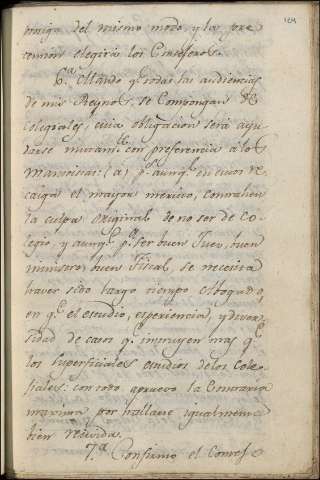 124
amiga del mismo modo, y la pre
tension elegirá los Consejeros.
6.ª Mando q.e todas las audiencias
de mis Reynos, se Compongan de
Colegiales, cuia obligacion será ayu
darse mutuam.te con preferencia a los
Manteistas: (a) p.r aunq.e en estos re
caiga el mayor merito, contrahen
la culpa original de no ser de Co
legio, y aunq.e p.a ser buen Juez, buen
ministro, buen Fiscal, se necesita
haver sido largo tiempo Abogado,
en q.e el estudio, esperiencia, y diver
sidad de casos q.e instruyen mas q.e
los superficiales estudios de los Cole
giales: con todo apruevo la Contraria
maxima por hallarse igualmente
bien recivida.
7.ª Confirmo el Conse